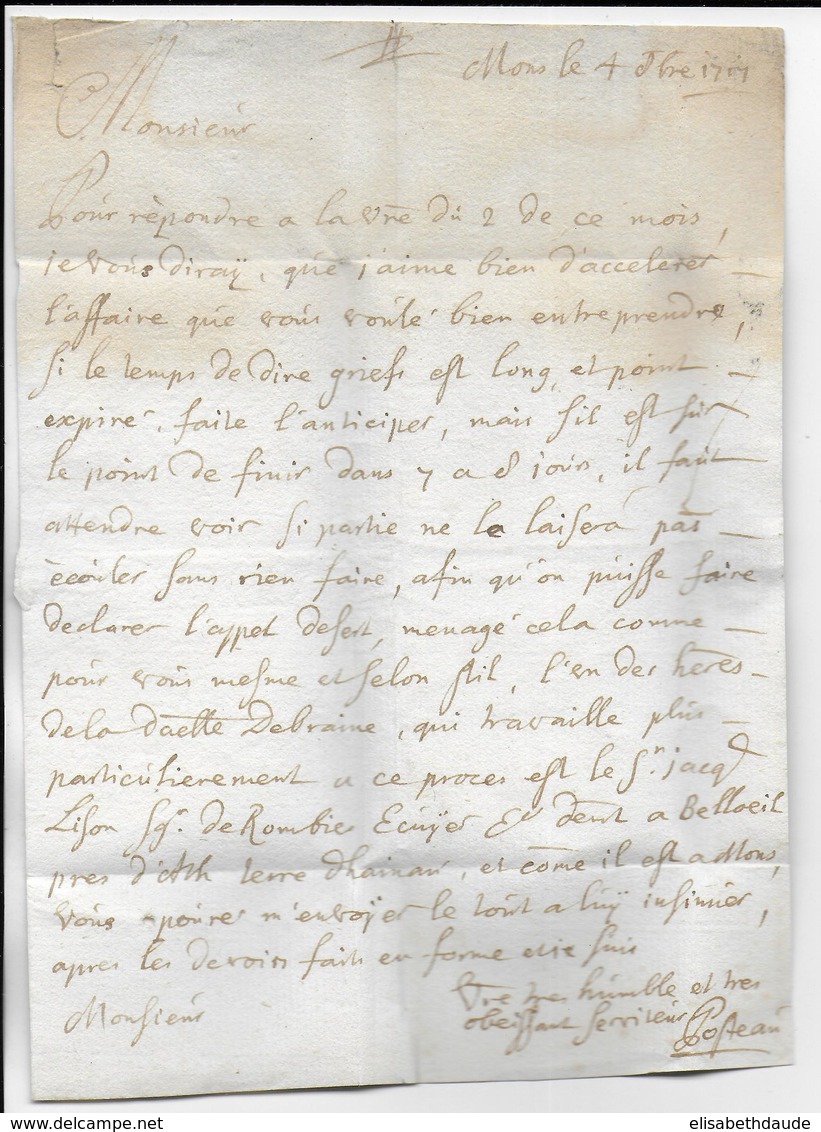 Mons le 4 8bre 1717
Monsieur
Pour rèpondre a la vre dù 2 de ce mois,
ie vous diraÿ, que j'aime bien d'accelerer
l'affaire que vous voulé bien entreprendre,
si le temps de dire griefs est long, et point
expiré, faite l'anticiper, mais s'il est sùr
le point de finir dans 7 a 8 jours, il faut
attendre voir si partie ne le laisera pas
ècouler sans rien faire, afin qu'on puisse faire
declarer l'appel desert, menagé cela comme
pour vous mesme et selon stil, l'un des heres
de la daelle Debraine, qui travaille plus
particulierement a ce proces est le Sr. jacq
Lison Sgr. de Rombies Ecuÿer &c demt a Belloeil
pres d'Ath terre d'hainau, et come il est a Mons,
vous pouré m'envoÿer le tout a luÿ insinuer,
apres les devoirs faits en forme et ie suis
Monsieur
Vre tres humble et tres
obeissant serviteur
Posteau
elisabethdaude
www.delcampe.net